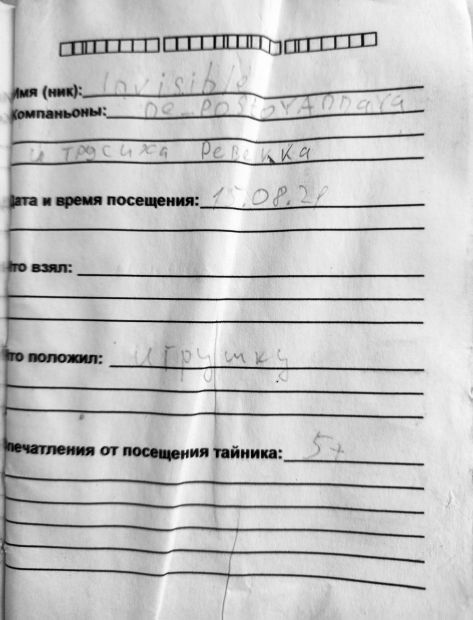 Имя (ник): Invisible
Компаньоны: ne_postoyannaya
и трусиха Ревекка
Дата и время посещения: 15.08.21
Что взял:
Что положил: игрушку
Впечатления от посещения тайника: 5+